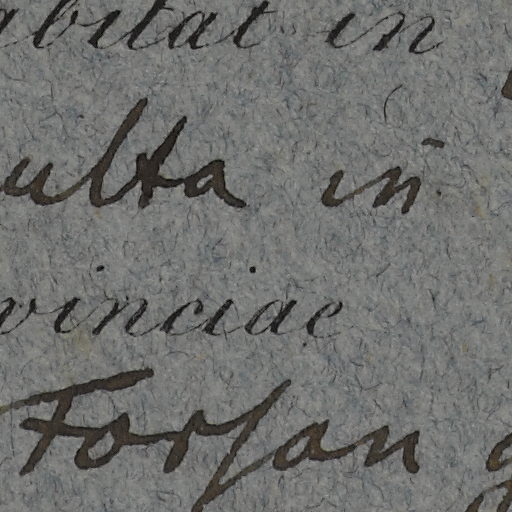 abitat in
ulta in
vinciae
Forsan g